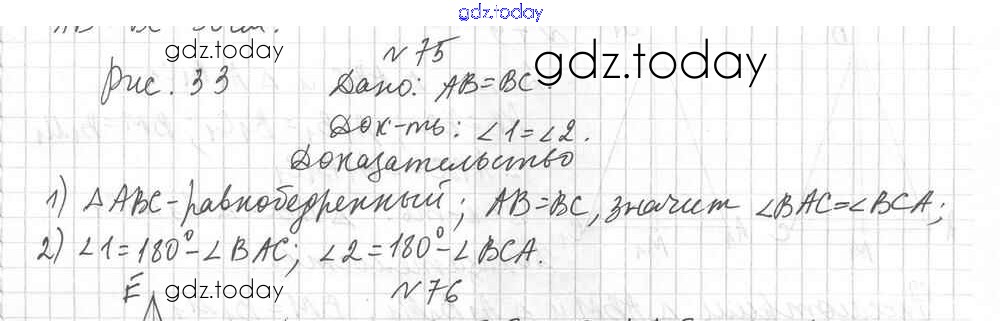 gdz.today
№75
gdz.today
gdz.today
рис. 33
Дано: AB=BC.
Док-ть: ∠1=∠2.
Доказательство
1) △ABC-равнобедренный; AB=BC, значит ∠BAC=∠BCA;
2) ∠1=180°-∠BAC; ∠2=180°-∠BCA.
E gdz.today №76